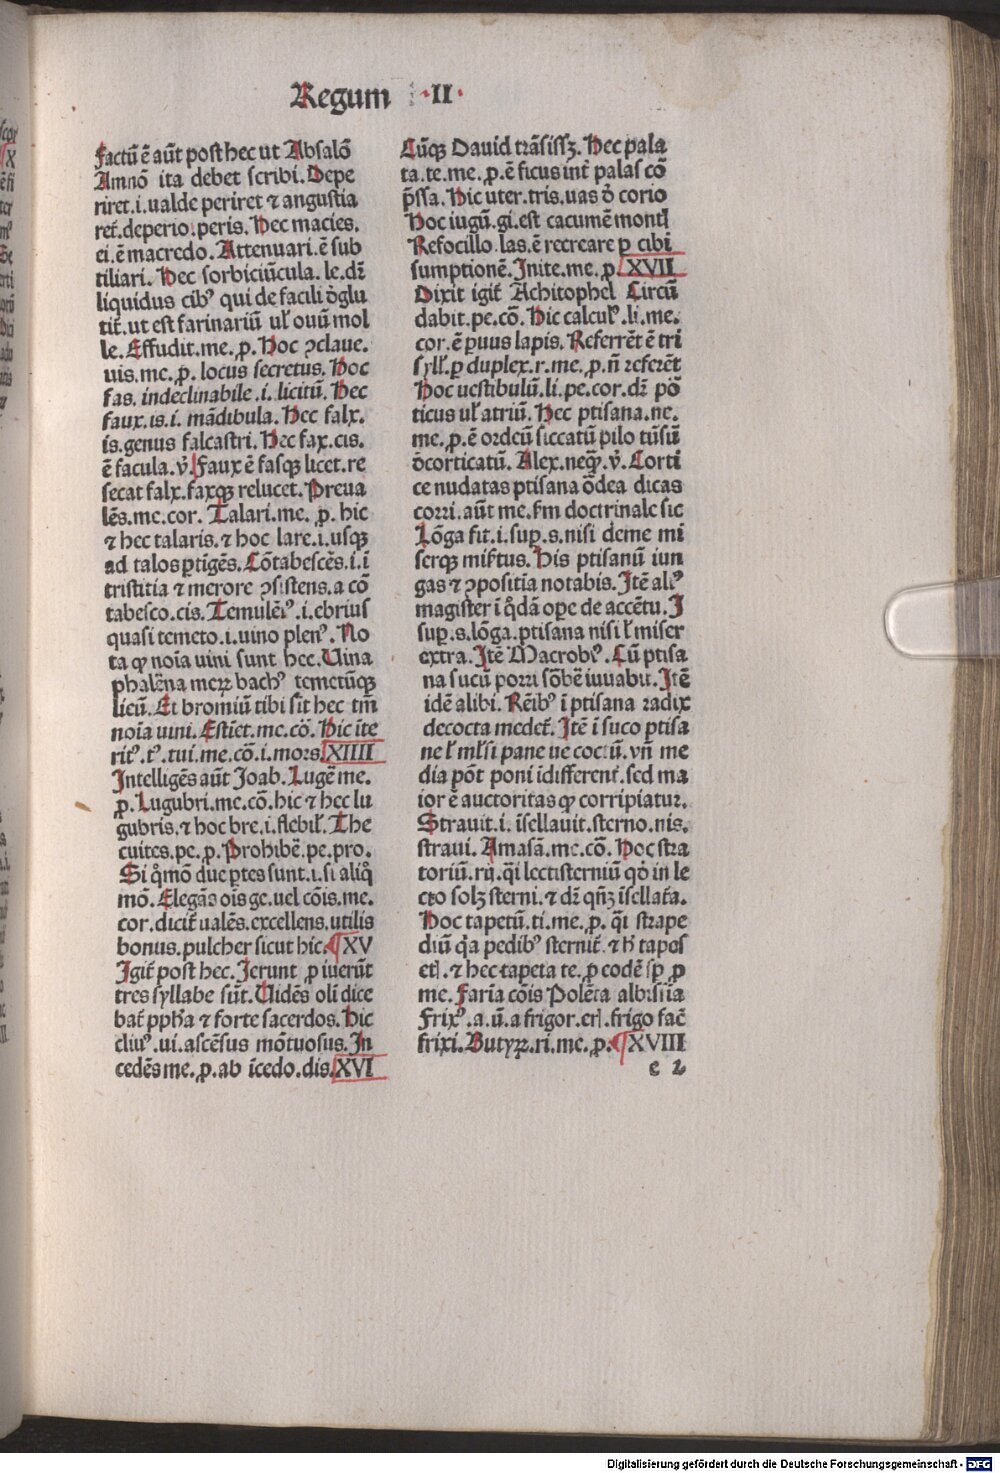 Regum ·II·
Factũ ẽ aũt post hec ut Absalõ
Amnõ ita debet scribi. Depe
riret .i. ualde periret ⁊ angustia
ret̃. deperio. peris. Hec macies.
ei. ẽ macredo. Attenuari .ẽ sub
tiliari. Hec sorbiciũcula. le. dr̃
liquidus cibꝰ qui de facili õglu
tit̃. ut est farinariũ ul̃ ouũ mol
le. Effudit. me. ꝓ. Hoc ꝯclaue.
uis. me. ꝓ. locus secretus. Hoc
fas. indeclinabile .i. licitũ. Hec
faux. is. i. mãdibula. Hec falx.
is. genus falcastri. Hec fax. cis.
ẽ facula. ṽ. Faux ẽ fasqꝫ licet. re
secat falx. faxqꝫ relucet. Preua
lẽs. me. cor. Talari. me. ꝓ. hic
⁊ hec talaris. ⁊ hoc lare. i. usqꝫ
ad talos ꝑtĩgẽs. Cõtabescẽs. i. ĩ
tristitia ⁊ merore ꝯsistens. a cõ
tabesco. cis. Temulẽtꝰ. i. ebrius
quasi temeto. i. uino plenꝰ. No
ta ꝙ noĩa uini sunt hec. Uina
phalẽna merꝝ bachꝰ temetũqꝫ
licũ. Et bromiũ tibi sĩt hec tm̃
noĩa uini. Estĩet. me. cõ. Hic ĩte
ritꝰ. tꝰ. tui. me. cõ. i. mors. XIIII
Intelligẽs aũt Joab. Lugẽ me.
ꝓ. Lugubri. me. cõ. hic ⁊ hec lu
gubris. ⁊ hoc bre. i. flebil̃. The
cuites. pe. ꝓ. Prohibẽ. pe. pro.
Si q̊mõ due ꝑtes sunt. i. si aliq̊
mõ. Elegãs oĩs ge. uel cõis. me.
cor. dicit̃ ualẽs. excellens. utilis
bonus. pulcher sicut hic. ¶ XV
Igit̃ post hec. Ierunt ꝓ iuerũt
tres syllabe sũt. Uidẽs oli dice
bat̃ ꝓph̃a ⁊ forte sacerdos. Hic
cliuꝰ. ui. ascẽsus mõtuosus. In
cedẽs me. ꝓ. ab ĩcedo. dis. XVI
Cũqꝫ Dauid trãsissꝫ. Hec pala
ta. te. me. ꝓ. ẽ ficus int̃ palas cõ
p̃ssa. Hic uter. tris. uas õ corio
Hoc iugũ. gi. est cacumẽ mont̃
Refocillo. las. ẽ recreare ꝑ cibi
sumptionẽ. Inite. me. ꝓ. XVII
Dixit igit̃ Achitophel Circũ
dabit. pe. cõ. Hic calculꝰ. li. me.
cor. ẽ ꝑuus lapis. Referrẽt ẽ tri
syll̃. ꝑ duplex. r. me. ꝓ. ñ referẽt
Hoc uestibulũ. li. pe. cor. dr̃ põ
ticus ul̃ atriũ. Hec ptisana. ne.
me. ꝓ. ẽ ordeũ siccatũ pilo tũsũ
õcorticatũ. Alex. neqꝫ. ṽ. Corti
ce nudatas ptisana õdea dicas
corri. aũt me. ẜm doctrinale sic
Lõga fit. i. suꝑ. s. nisi deme mi
serqꝫ mir̃tus. His ptisanũ iun
gas ⁊ ꝯpositia notabis. Itẽ aliꝰ
magister ĩ q̊dã oꝑe de accẽtu. I
suꝑ. s. lõga. ptisana nisi l̃ miser
extra. Itẽ Macrobꝰ. Cũ ptisa
na sucũ porri sõbẽ iuuabit. Itẽ
idẽ alibi. Rẽibꝰ ĩ ptisana radix
decocta medet̃. Itẽ ĩ suco ptisa
ne l̃ ml̃si pane ue coctũ. vñ me
dia põt poni ĩdifferent̃. sed ma
ior ẽ auctoritas ꝙ corripiatur.
Strauit. i. ĩsellauit. sterno. nis.
straui. Amasã. me. cõ. Hoc stra
toriũ. rij. q̃i lectisterniũ qð in le
cto solꝫ sterni. ⁊ dr̃ qñꝫ ĩsellat̃a.
Hoc tapetũ. ti. me. ꝓ. q̃i strape
diũ q̃a pedibꝰ sternit̃. ⁊ h̃ tapos
et̃. ⁊ hec tapeta te. ꝓ eodẽ sꝑ ꝓ
me. Farĩa cõis Polẽta albisĩĩa
Frixꝰ. a. ũ. a frigor. er̃. frigo facẽ
frixi. Butyꝝ. ri. me. ꝓ. ¶ XVIII
e 2
Digitalisierung gefördert durch die Deutsche Forschungsgemeinschaft - DFG